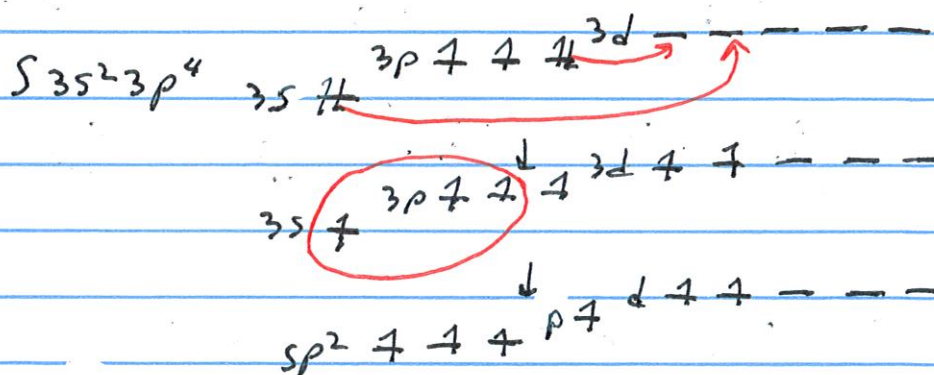 S 3s² 3p⁴ 3s 3p 3d
3s 3p 3d
sp² p d